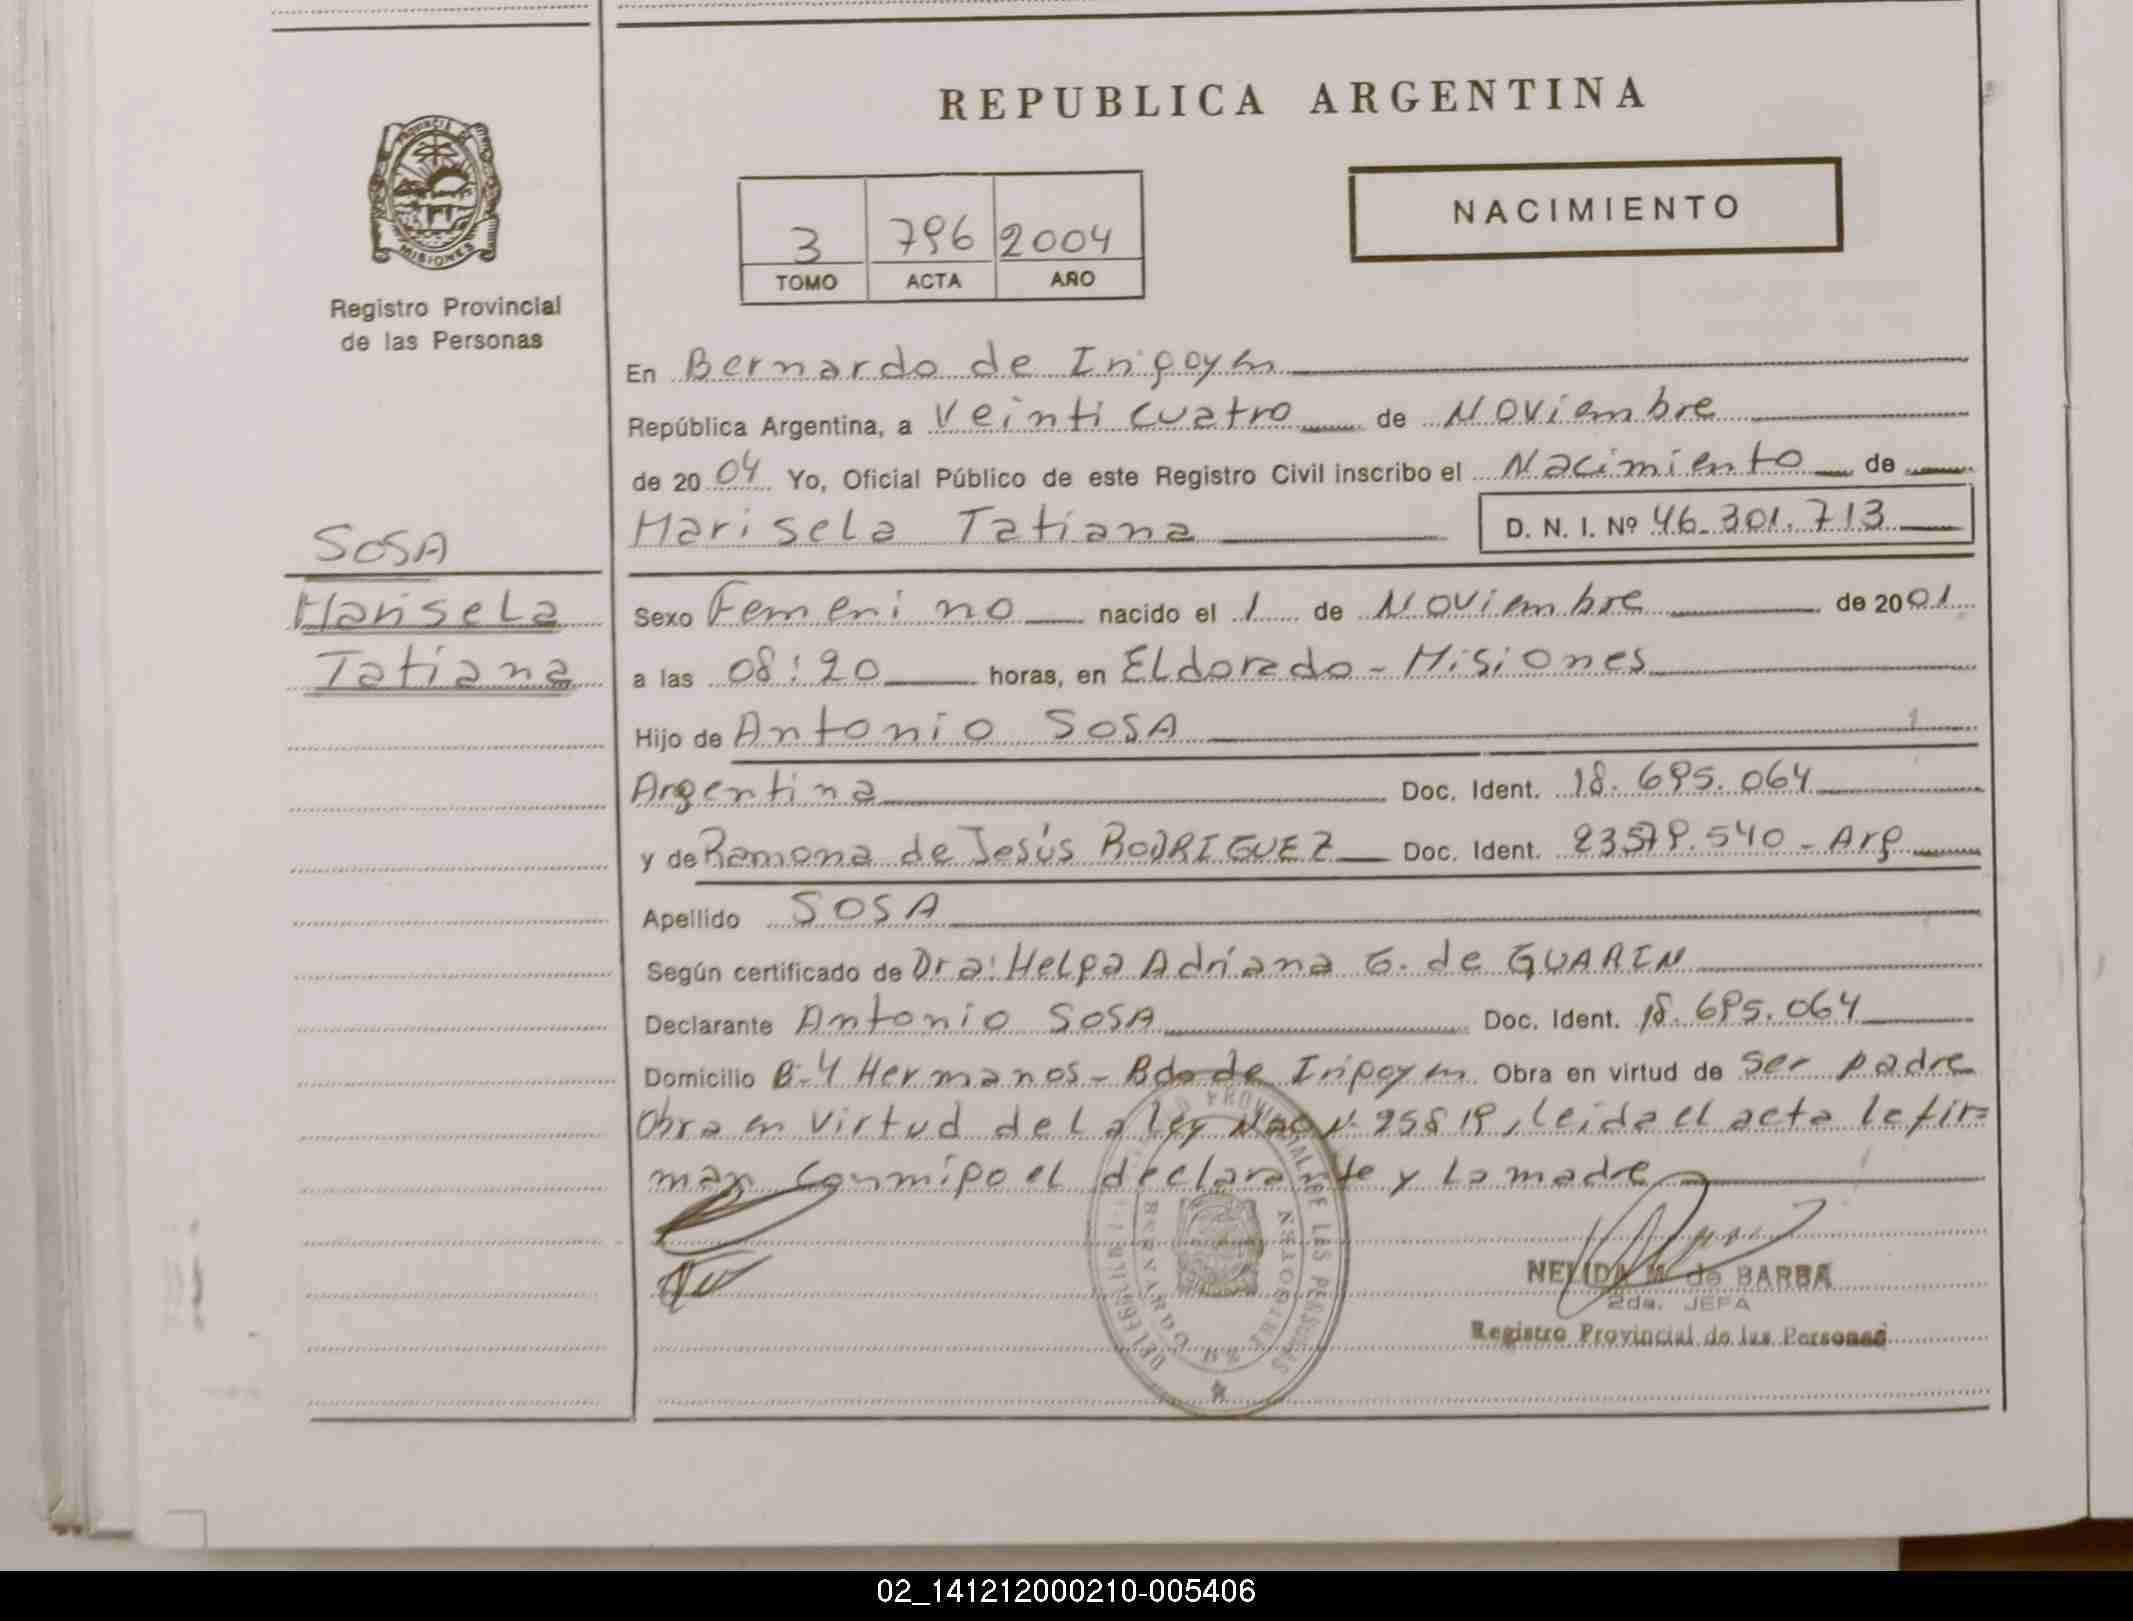 REPUBLICA ARGENTINA
PROVINCIA DE
MISIONES
Registro Provincial
de las Personas
3 796 2004
TOMO ACTA AÑO
NACIMIENTO
En Bernardo de Irigoyen
República Argentina, a Veinti cuatro de Noviembre
de 2004 Yo, Oficial Público de este Registro Civil inscribo el Nacimiento de
Marisela Tatiana D. N. I. Nº 46.301.713
SOSA
Marisela
Tatiana
Sexo Femenino nacido el 1 de Noviembre de 2001
a las 08:20 horas, en ELdorado - Misiones
Hijo de Antonio SOSA
Argentina Doc. Ident. 18.695.064
y de Ramona de Jesús RODRIGUEZ Doc. Ident. 23579.540 - Arg
Apellido SOSA
Según certificado de Dra: Helga Adriana G. de GUARIN
Declarante Antonio SOSA Doc. Ident. 18.695.064
Domicilio B-4 Hermanos - Bdo de Irigoyen Obra en virtud de ser padre
Obra en virtud de La ley Nac N. 25819, leida el acta la fir=
man conmigo el declarante y La madre
NELIDA M. de BARBA
2da. JEFA
Registro Provincial de las Personas
02_141212000210-005406